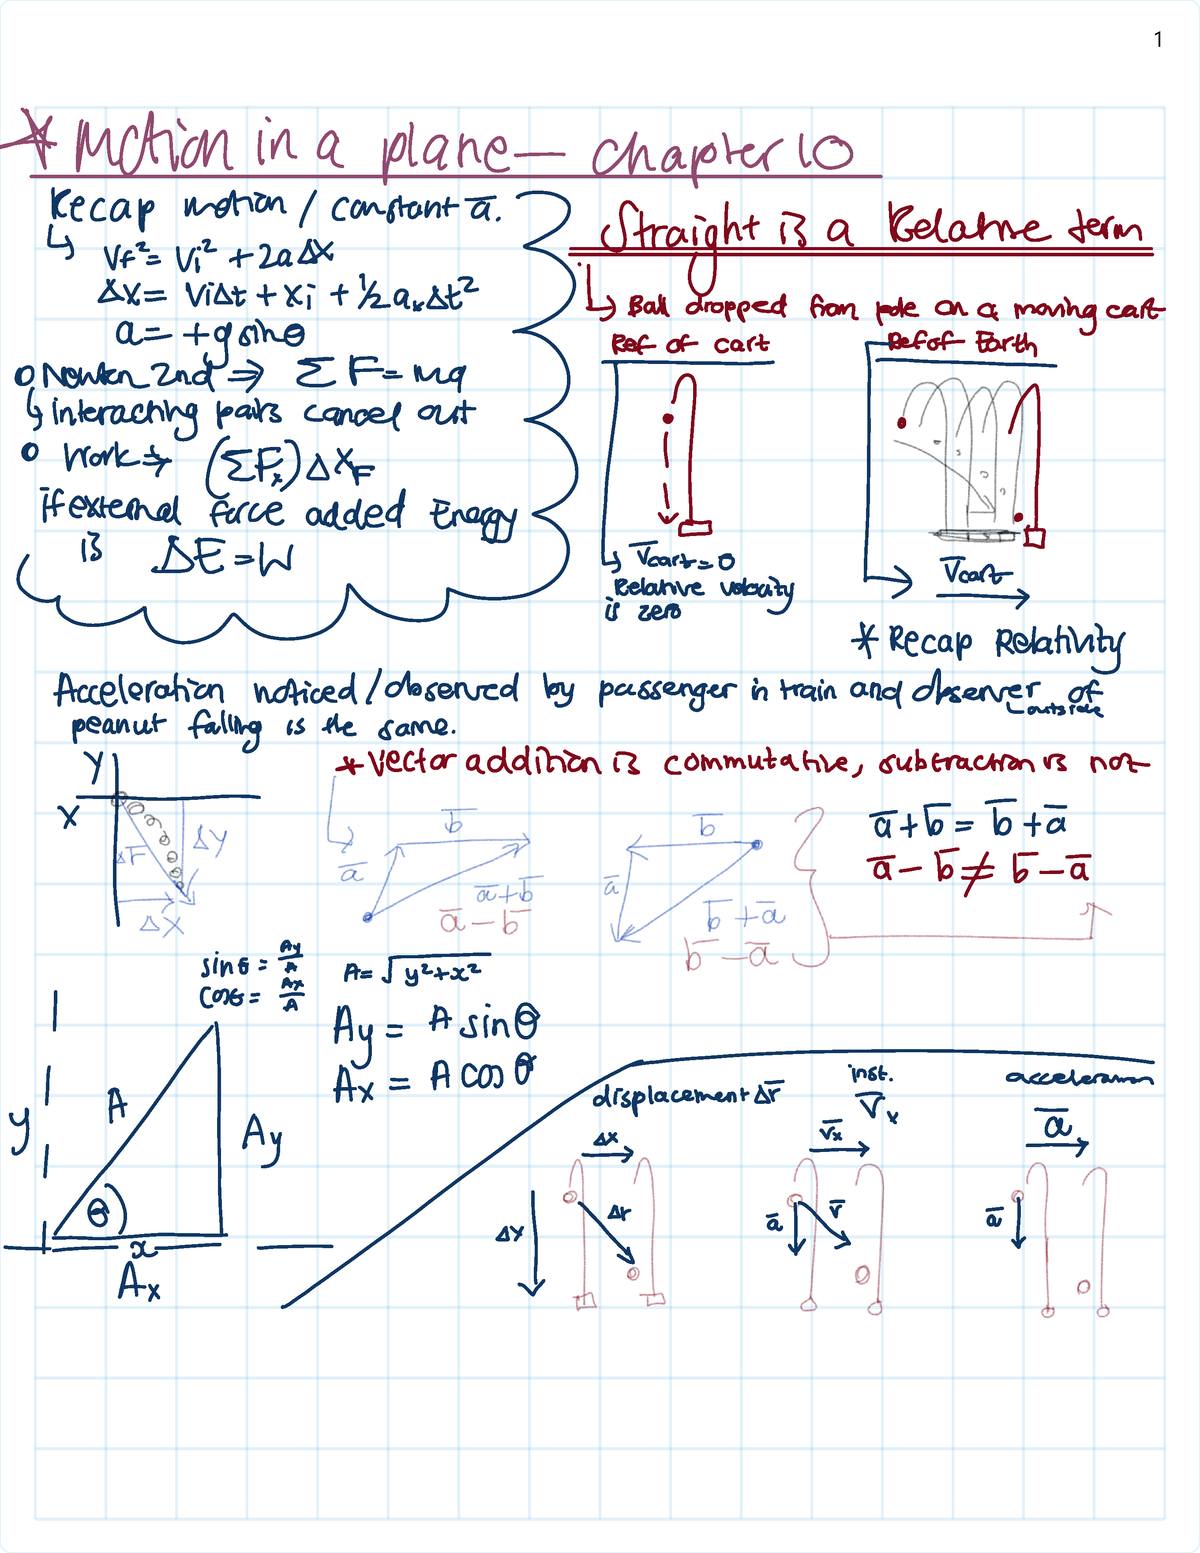 1
* Motion in a plane — chapter 10
Recap motion / constant a̅.
↳ Vf² = Vi² + 2aΔx
Δx = ViΔt + xi + ½ aₓΔt²
a = +g sinθ
o Newton 2nd ⇒ ΣF = ma
↳ interacting pairs cancel out
o Work ⇒ (ΣFₓ)ΔX_F
if external force added Energy
is ΔE = W
Straight is a Relative term
↳ Ball dropped from pole on a moving cart
Ref of cart
↳ V̅cart = 0
Relative velocity
is zero
Ref of Earth
V̅cart
* Recap Relativity
Acceleration noticed / observed by passenger in train and observer of
outside
peanut falling is the same.
Y
X
Δr
Δy
Δx
* Vector addition is commutative, subtraction is not
a̅
b̅
a̅+b̅
a̅ − b̅
b̅
a̅
b̅ + a̅
b̅ − a̅
a̅ + b̅ = b̅ + a̅
a̅ − b̅ ≠ b̅ − a̅
sinθ = Ay/A
cosθ = Ax/A
A = √y²+x²
Ay = A sinθ
Ax = A cosθ
y
A
Ay
θ
x
Ax
displacement Δr̅
Δx
Δr
Δy
inst.
V̅ₓ
V̅x
a̅
v̅
acceleration
a̅
a̅